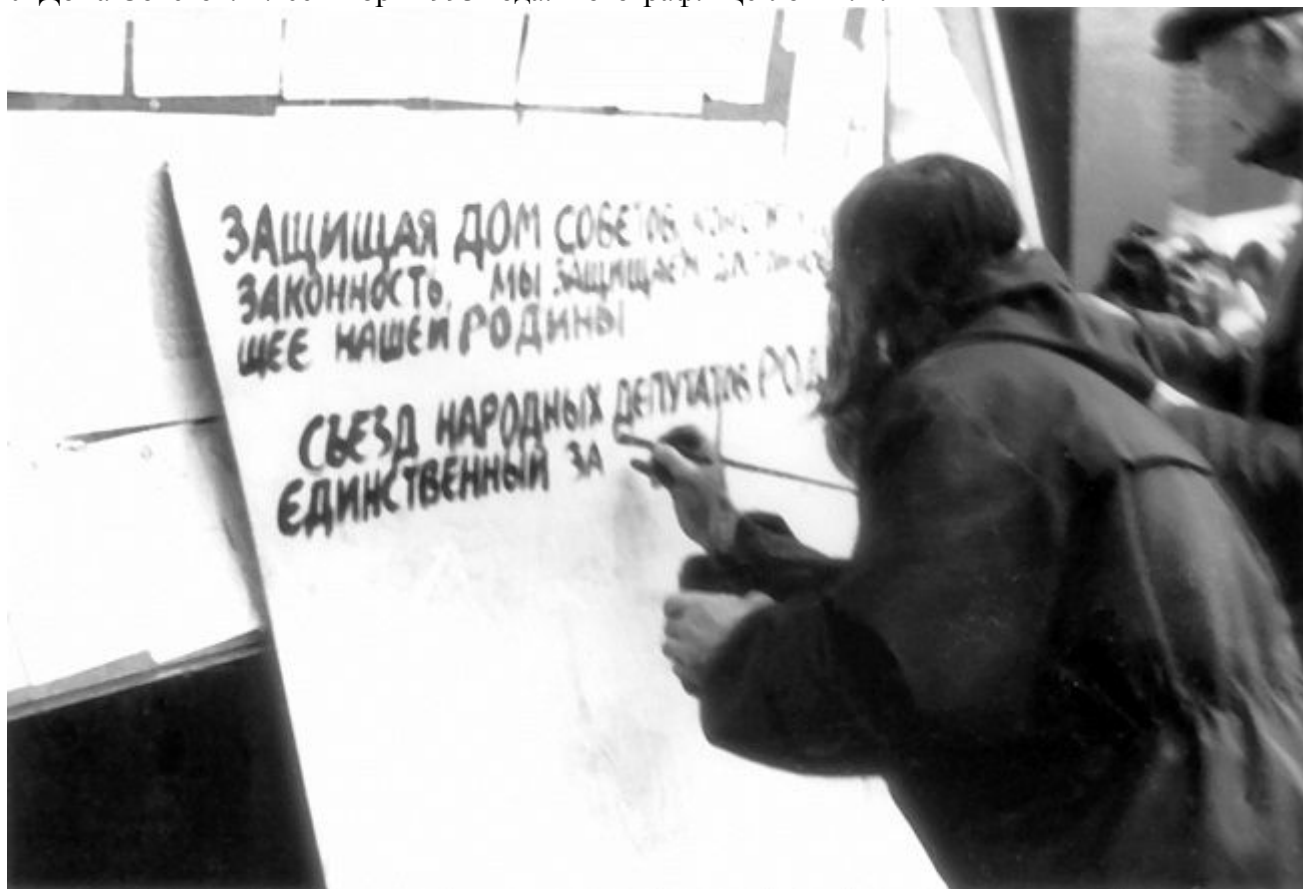 ЗАЩИЩАЯ ДОМ СОВЕТОВ
ЗАКОННОСТЬ, МЫ ЗАЩИЩАЕМ
ЩЕЕ НАШЕЙ РОДИНЫ
СЪЕЗД НАРОДНЫХ ДЕПУТАТОВ РОД
ЕДИНСТВЕННЫЙ ЗА